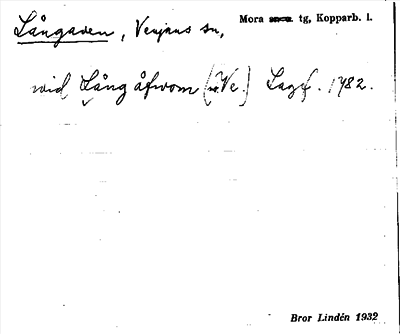 Långaden, Venjans sn, Mora tg, Kopparb. l.
wid Lång åfwom (Ve.) Lagf. 1782.
Bror Lindén 1932